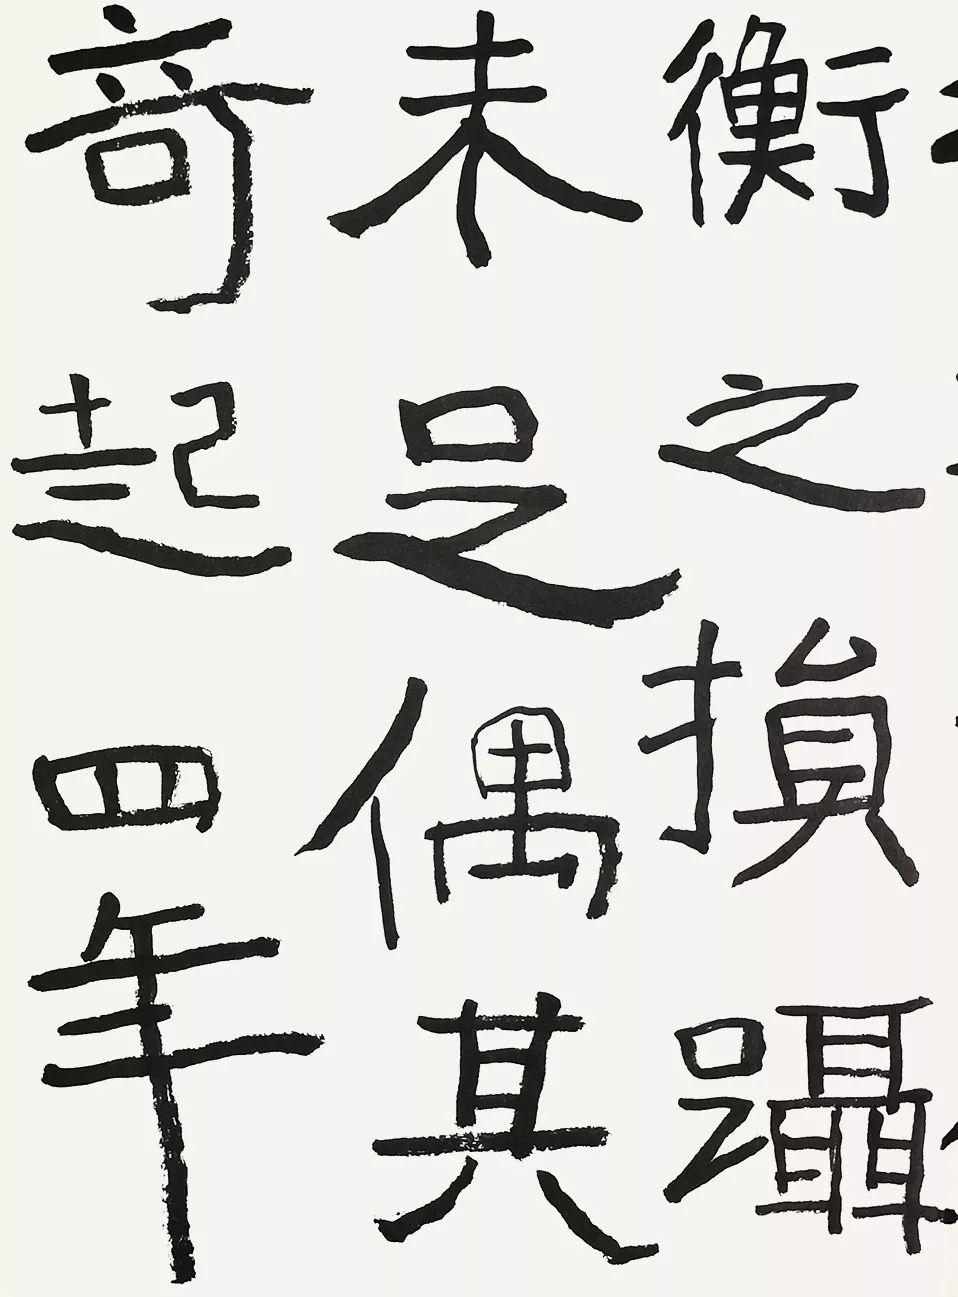 衡之損躡
未足偶其
竒起四年